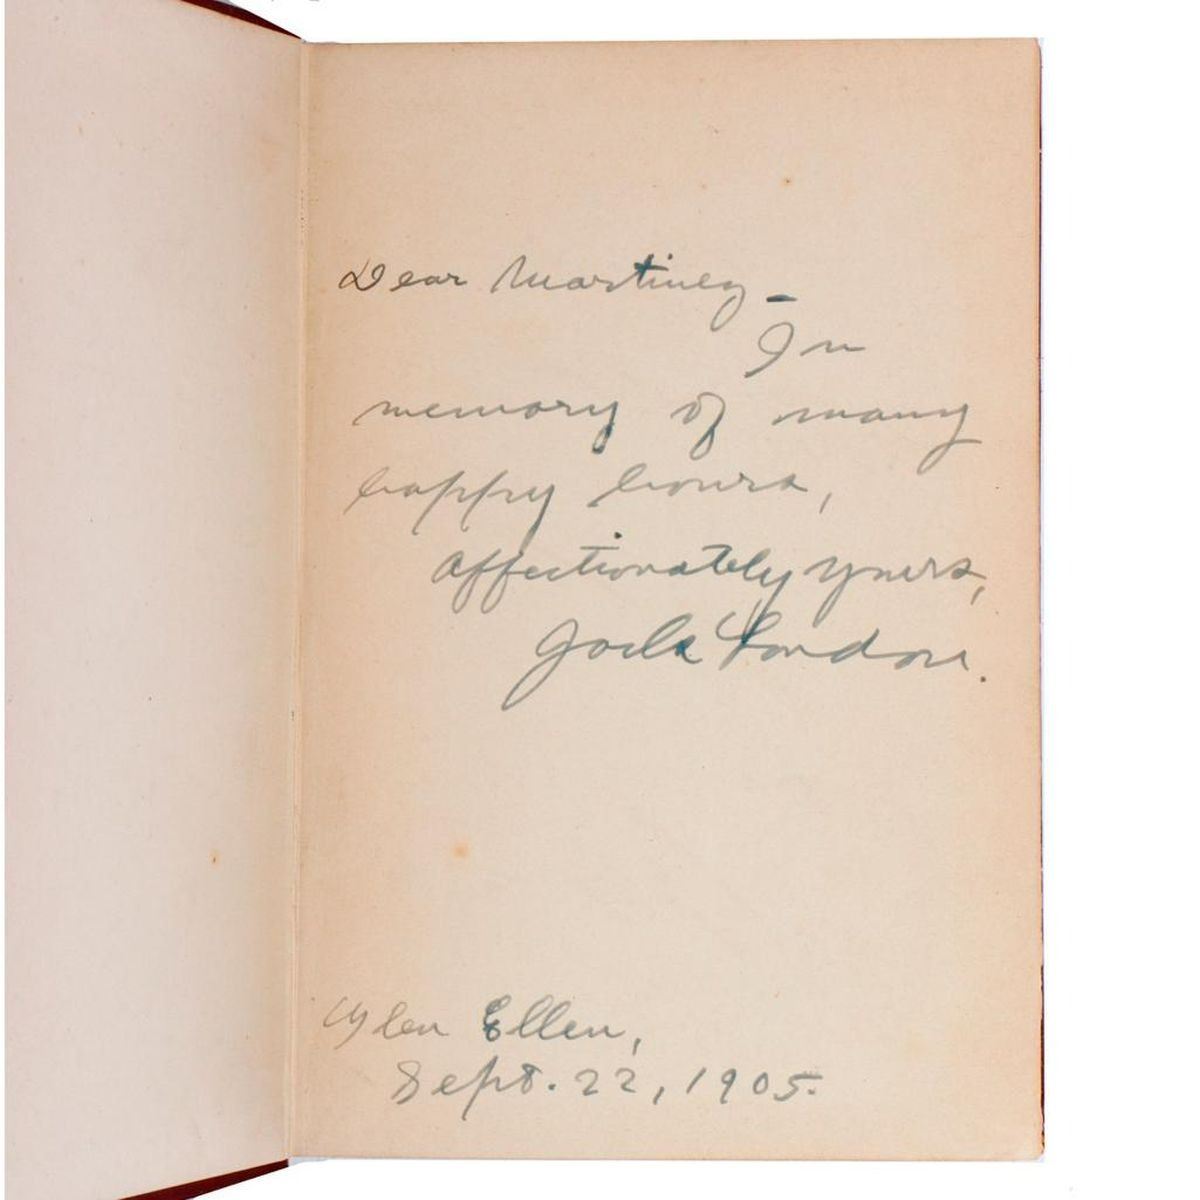 Dear Martinez –
In
memory of many
happy hours,
Affectionately yours,
Jack London.
Glen Ellen,
Sept. 22, 1905.